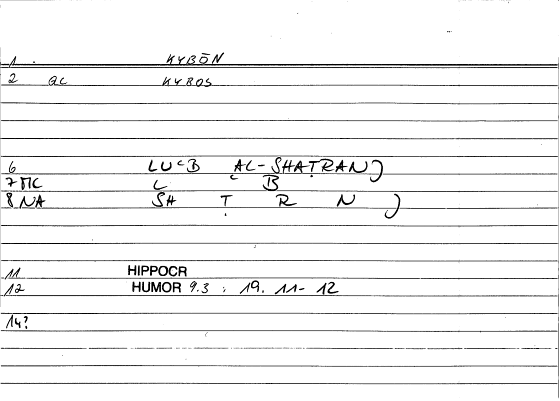 1 . KYBŌN
2 . GL KYBOS
6 LUᶜB AL-SHAṬRANJ
7 MC L ᶜ B
8 NA SH Ṭ R N J
11 HIPPOCR
12 HUMOR 9.3 ; 19. 11-12
14?